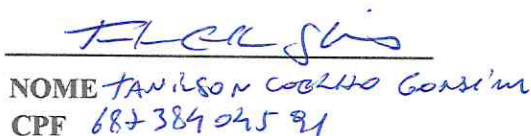 NOME TANILSON COELHO
CPF 687384045 91